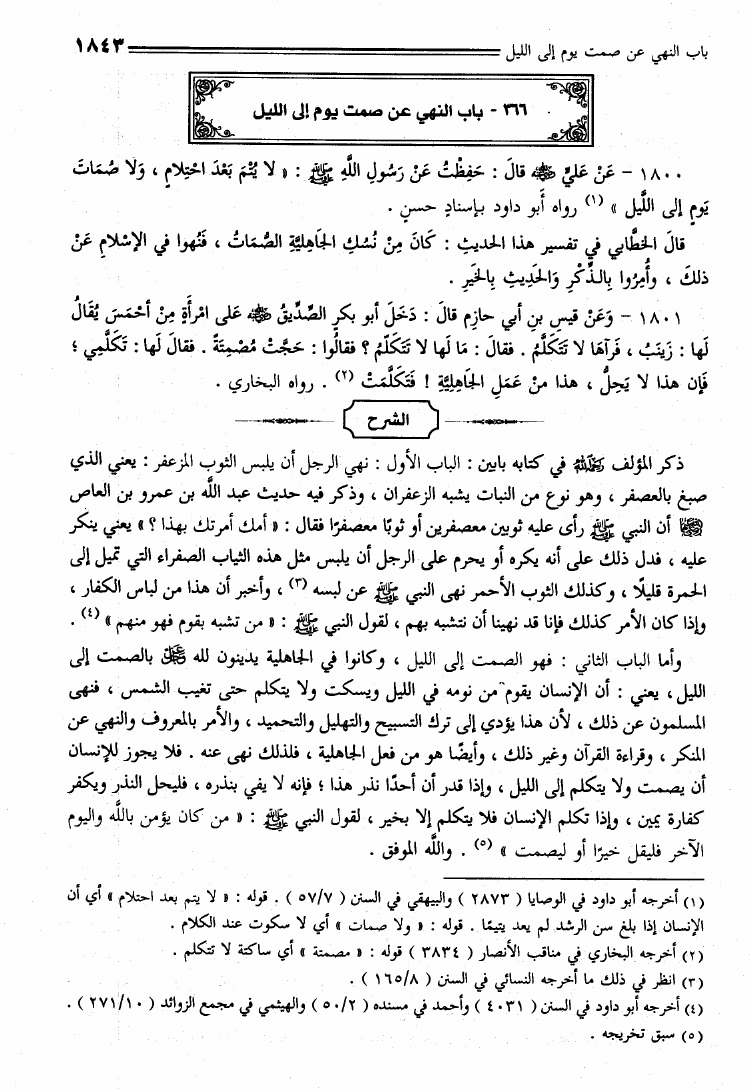 باب النهي عن صمت يوم إلى الليل ١٨٤٣
٣٦٦ - باب النهي عن صمت يوم إلى الليل
١٨٠٠ - عَنْ عَليٍّ ﷺ قالَ : حَفِظْتُ عَنْ رَسُولِ اللَّهِ ﷺ : « لا يُتْمَ بَعْدَ احْتِلامٍ ، وَلا صُمَاتَ
يَومٍ إلى اللَّيلِ » (١) رواه أبو داود بإسنادٍ حسنٍ .
قالَ الخَطَّابي في تفسير هذا الحديثِ : كَانَ مِنْ نُسُكِ الجَاهليَّةِ الصُّمَاتُ ، فَنُهوا في الإسْلامِ عَنْ
ذلكَ ، وأُمِرُوا بِالذِّكْرِ وَالحَدِيثِ بِالخَيرِ .
١٨٠١ - وَعَنْ قيسِ بنِ أبي حازِمٍ قالَ : دَخَلَ أبو بكرٍ الصِّدِّيقُ ﷺ عَلى امْرأَةٍ مِنْ أَحْمَسَ يُقَالُ
لهَا : زَيْنَبُ ، فَرَآهَا لا تَتَكَلَّمُ . فقالَ : مَا لهَا لا تَتَكَلَّمُ ؟ فقالُوا : حَجَّتْ مُصْمِتَةً . فقالَ لهَا : تَكَلَّمِي ؛
فَإن هذا لا يَحِلُّ ، هذا منْ عَمَلِ الجَاهِليَّةِ ! فَتَكَلَّمَتْ (٢) . رواه البخاري .
الشرح
ذكر المؤلف رحمه الله في كتابه بابين : الباب الأول : نهي الرجل أن يلبس الثوب المزعفر : يعني الذي
صبغ بالعصفر ، وهو نوع من النبات يشبه الزعفران ، وذكر فيه حديث عبد الله بن عمرو بن العاص
أن النبي ﷺ رأى عليه ثوبين معصفرين أو ثوبًا معصفرًا فقال : « أمك أمرتك بهذا ؟ » يعني ينكر
عليه ، فدل ذلك على أنه يكره أو يحرم على الرجل أن يلبس مثل هذه الثياب الصفراء التي تميل إلى
الحمرة قليلًا ، وكذلك الثوب الأحمر نهى النبي ﷺ عن لبسه (٣) ، وأخبر أن هذا من لباس الكفار ،
وإذا كان الأمر كذلك فإنا قد نهينا أن نتشبه بهم ، لقول النبي ﷺ : « من تشبه بقوم فهو منهم » (٤) .
وأما الباب الثاني : فهو الصمت إلى الليل ، وكانوا في الجاهلية يدينون لله بالصمت إلى
الليل ، يعني : أن الإنسان يقوم من نومه في الليل ويسكت ولا يتكلم حتى تغيب الشمس ، فنهى
المسلمون عن ذلك ، لأن هذا يؤدي إلى ترك التسبيح والتهليل والتحميد ، والأمر بالمعروف والنهي عن
المنكر ، وقراءة القرآن وغير ذلك ، وأيضًا هو من فعل الجاهلية ، فلذلك نهى عنه . فلا يجوز للإنسان
أن يصمت ولا يتكلم إلى الليل ، وإذا قدر أن أحدًا نذر هذا ؛ فإنه لا يفي بنذره ، فليحل النذر ويكفر
كفارة يمين ، وإذا تكلم الإنسان فلا يتكلم إلا بخير ، لقول النبي ﷺ : « من كان يؤمن باللَّه واليوم
الآخر فليقل خيرًا أو ليصمت » (٥) . واللَّه الموفق .
(١) أخرجه أبو داود في الوصايا ( ٢٨٧٣ ) والبيهقي في السنن ( ٥٧/٧ ) . قوله : « لا يتم بعد احتلام » أي أن
الإنسان إذا بلغ سن الرشد لم يعد يتيمًا . قوله : « ولا صمات » أي لا سكوت عند الكلام .
(٢) أخرجه البخاري في مناقب الأنصار ( ٣٨٣٤ ) قوله : « مصمتة » أي ساكتة لا تتكلم .
(٣) انظر في ذلك ما أخرجه النسائي في السنن ( ١٦٥/٨ ) .
(٤) أخرجه أبو داود في السنن ( ٤٠٣١ ) وأحمد في مسنده ( ٥٠/٢ ) والهيثمي في مجمع الزوائد ( ٢٧١/١٠ ) .
(٥) سبق تخريجه .